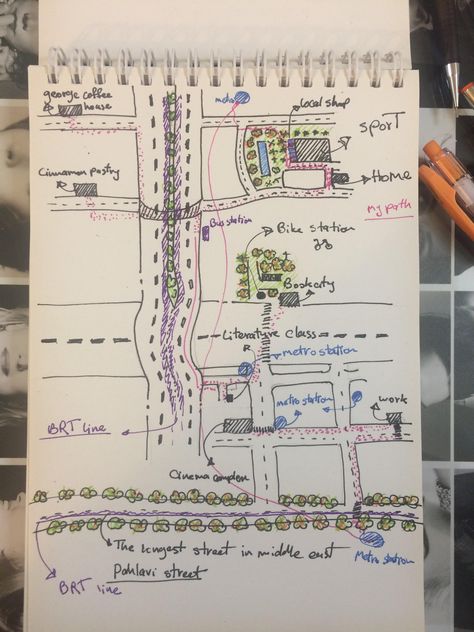 george coffee
house
metro
local shop
SPORT
Cinnamon pastry
Home
My path
Bus station
Bike station
Bookcity
Literature class
metro station
metro station
work
BRT line
Cinema
The longest street in middle east
Pahlavi street
Metro station
BRT line